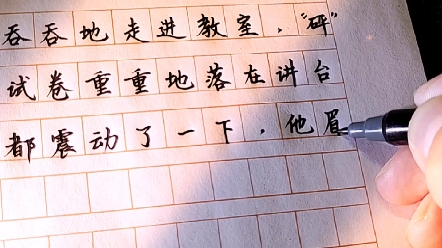 吞吞地走进教室，“砰”
试卷重重地落在讲台
都震动了一下，他眉